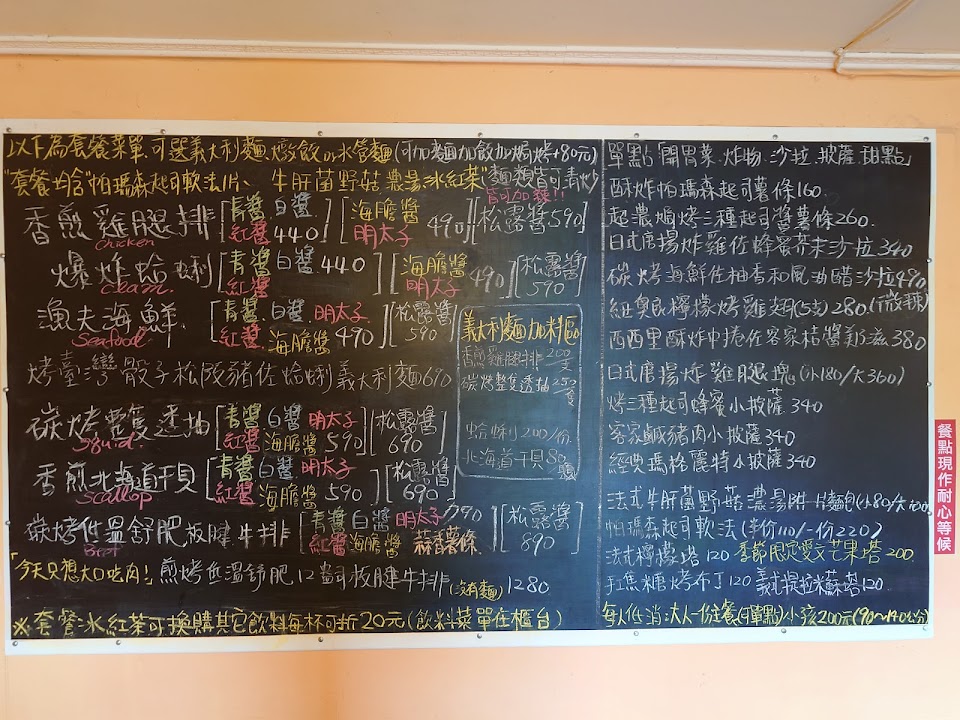 以下為套餐菜單.可選義大利麵.燉飯.水管麵(可加麵加飯加焗烤+80元)
"套餐均含"帕瑪森起司軟法1片、牛肝菌野菇濃湯.冰紅茶"麵類皆可青炒
皆可加辣!!
香煎雞腿排[青醬 白醬 紅醬 440][海膽醬 明太子 490][松露醬 590]
chicken
爆炸蛤蜊[青醬 白醬 440 紅醬][海膽醬 明太子 490][松露醬 590]
Clam.
漁夫海鮮[青醬 白醬 明太子 紅醬 海膽醬 490][松露醬 590]
Seafood
烤臺灣骰子松阪豬佐蛤蜊義大利麵690
碳烤整隻透抽[青醬 白醬 明太子 紅醬 海膽醬 590][松露醬 690]
Squid
香煎北海道干貝[青醬 白醬 明太子 紅醬 海膽醬 590][松露醬 690]
Scallop
碳烤低溫舒肥板腱牛排[青醬 白醬 明太子 790 紅醬 海膽醬 蒜香薯條][松露醬 890]
Beef
「今天只想大口吃肉!」煎烤低溫舒肥12盎司板腱牛排(沒有麵)1280
※套餐冰紅茶可換購其它飲料每杯可折20元(飲料菜單在櫃台)
義大利麵加料區
香煎雞腿排 200/支
碳烤整隻透抽 250/隻
蛤蜊 200/份
北海道干貝 80/顆
單點「開胃菜.炸物.沙拉.披薩.甜點」
酥炸帕瑪森起司薯條160.
超濃焗烤三種起司醬薯條260.
日式唐揚炸雞佐蜂蜜芥末沙拉340
碳烤海鮮佐柚香和風油醋沙拉490
紐奧良檸檬烤雞翅(5支)280.(微辣)
西西里酥炸中捲佐客家桔醬美乃滋380
日式唐揚炸雞腿塊(小180/大360)
烤三種起司蜂蜜小披薩340
客家鹹豬肉小披薩340
經典瑪格麗特小披薩340
法式牛肝菌野菇濃湯附一片麵包(小80/大100)
帕瑪森起司軟法(半份110/一份220)
法式檸檬塔120 季節限定愛文芒果塔200
手工焦糖烤布丁120 義式提拉米蘇塔120
每人低消:大人一份主餐(可單點)小孩200元(90~140公分)
餐點現作耐心等候